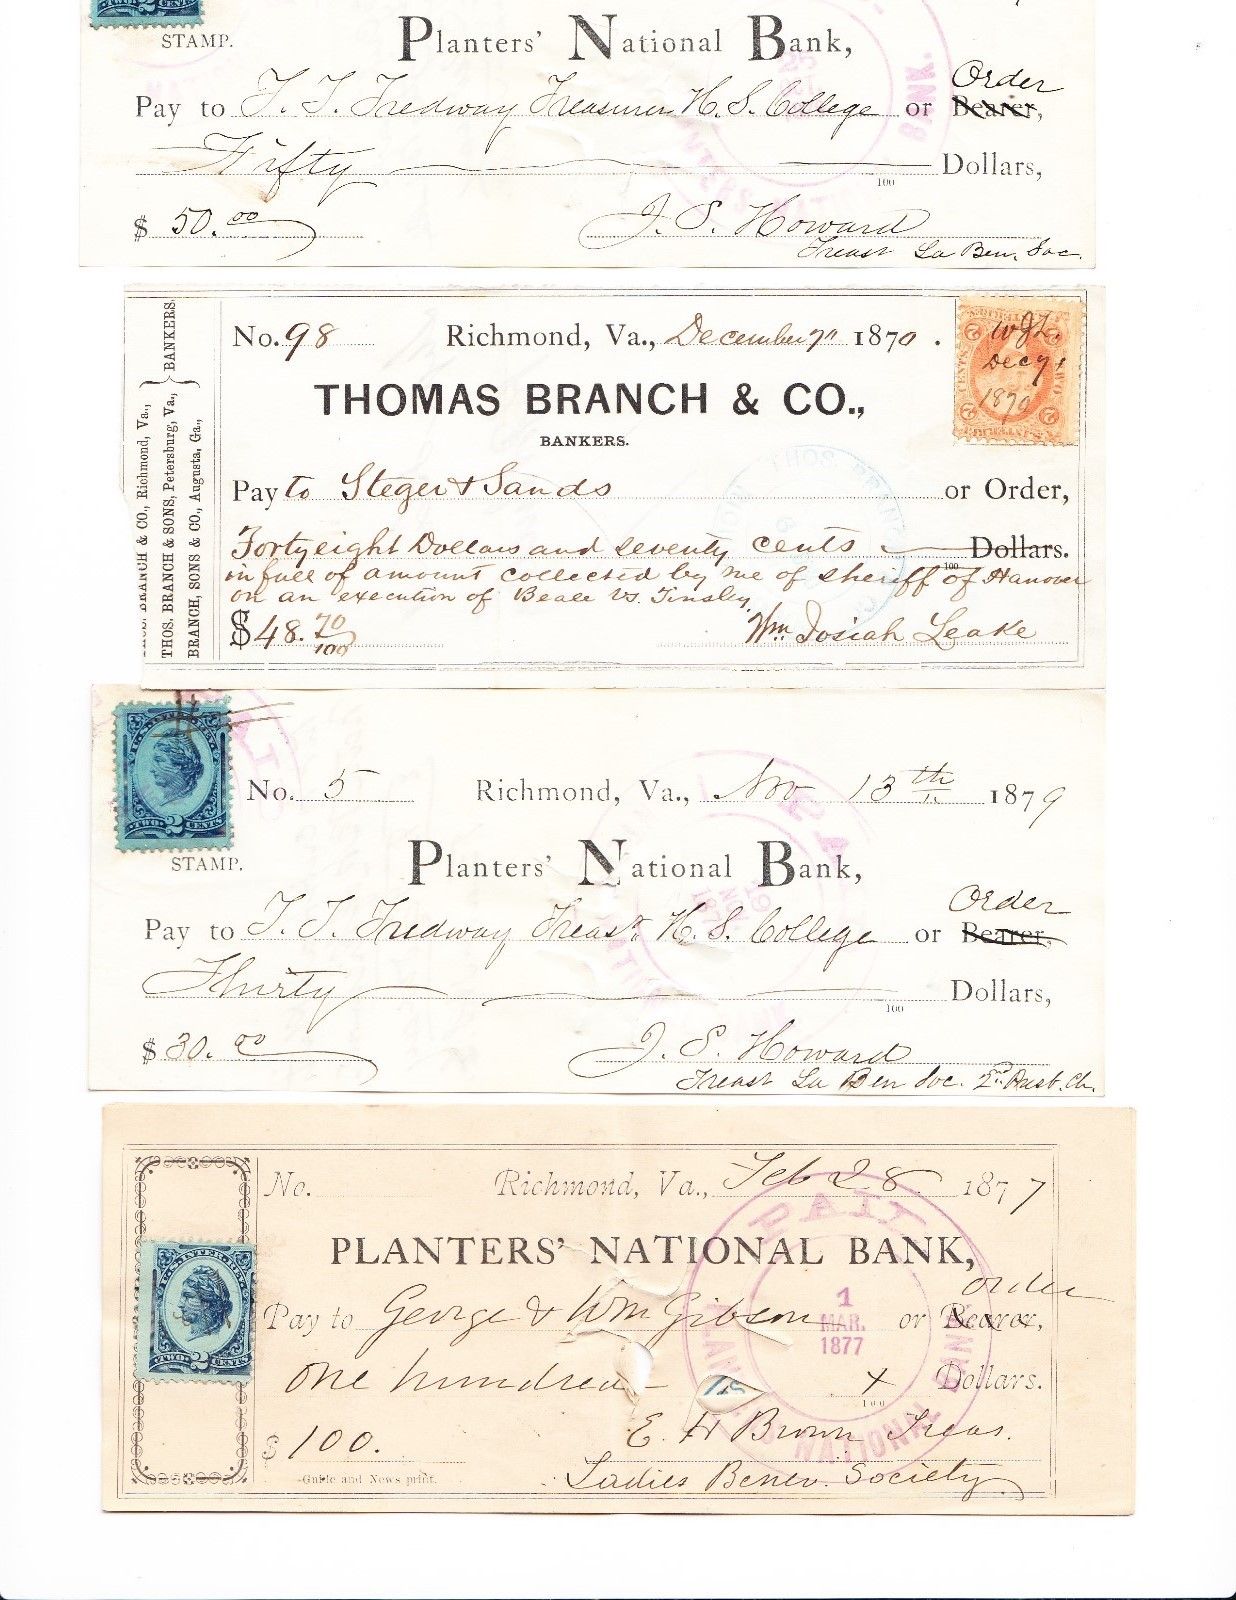 STAMP.
Planters' National Bank,
Order
Pay to T. T. Tredway Treasurer H. S. College or Bearer,
Fifty Dollars,
100
$ 50.00 J. S. Howard
Treasr La Ben. Soc.
THOS. BRANCH & CO., Richmond, Va.,
THOS. BRANCH & SONS, Petersburg, Va.,
BRANCH, SONS & CO., Augusta, Ga.,
BANKERS.
No. 98 Richmond, Va., December 7th 1870.
THOMAS BRANCH & CO.,
BANKERS.
WJL
Dec 7,
1870
CENTS TWO
2 2
Pay to Steger & Sands or Order,
Forty eight Dollars and seventy cents Dollars.
100
in full of amount collected by me of sheriff of Hanover
on an execution of Beale vs. Tinsley,
$48.70/100 Wm Josiah Leake
U.S. INTER. REV.
TWO 2 CENTS
STAMP.
No. 5 Richmond, Va., Nov 13th 1879
Planters' National Bank,
Order
Pay to T. T. Tredway Treasr. H. S. College or Bearer,
Thirty Dollars,
100
$ 30.00 J. S. Howard
Treasr La Ben Soc. 2nd Presb. Ch.
No. Richmond, Va., Feb 28 1877
PLANTERS' NATIONAL BANK,
U.S. INTER. REV.
TWO 2 CENTS
order
Pay to George & Wm Gibson or Bearer,
One hundred Dollars.
100
$ 100. E. H Brown Treas.
Ladies Benev. Society
Guide and News print.
PAID
1
MAR.
1877
PLANTERS NATIONAL BANK